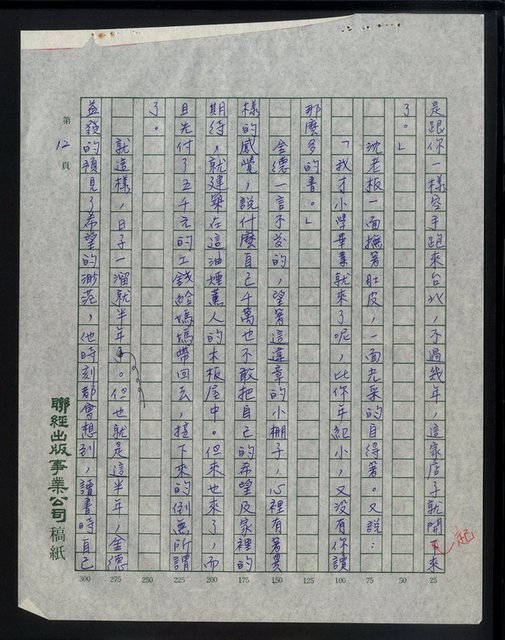 是跟你一樣空手跑來台北，不過幾年，這家店子就開起來
了。」
沈老板一面撫著肚皮，一面光采的自得著。又說：
「我才小學畢業就來了呢，比你年紀小，又沒有你讀
那麼多的書。」
金德一言不發的，望著這違章的小棚子，心裡有著異
樣的感覺，說什麼自己千萬也不敢把自己的希望及家裡的
期待，就建築在這油煙薰人的木板屋中。但來也來了，而
且先付了五千元的工錢給媽媽帶回去，接下來的倒無所謂
了。
就這樣，日子一溜就半年。但也就是這半年，金德
益發的預見了希望的渺茫，他時刻都會想到，讀書時自己
第12頁
聯經出版事業公司稿紙
25
50
75
100
125
150
175
200
225
250
275
300